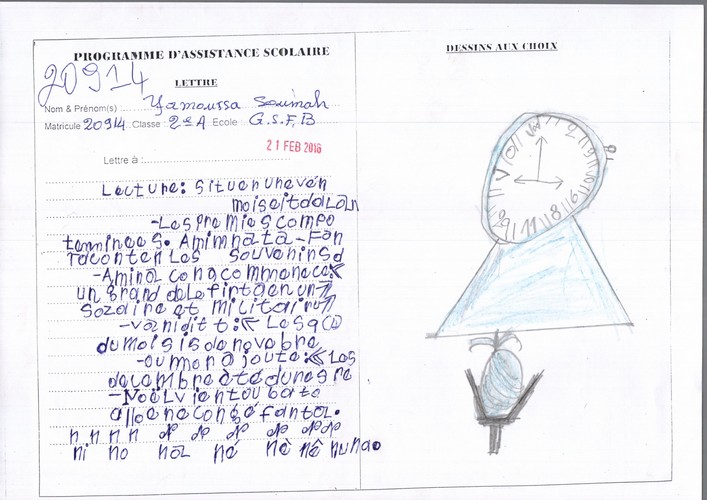 PROGRAMME D'ASSISTANCE SCOLAIRE
20914
LETTRE
Nom & Prénom(s) : Yamoussa Soumah
Matricule 20914 Classe : 2e A Ecole G.S.F.B
21 FEB 2016
Lettre à :
Lecture: Situer un even
moiseitdalan
-Les premies compo
terminees. Aminnata-Fan
raconter les souvenirs d
-Amina con a commence:«
un grand dele firtaen un
-vanidit:« Les
du mois is de novebre
-oumar ajoute:« Les
decembre été dunegre
-Noël vient ou bate
n n n n
ni no nou né nè nê nu nao
DESSINS AUX CHOIX